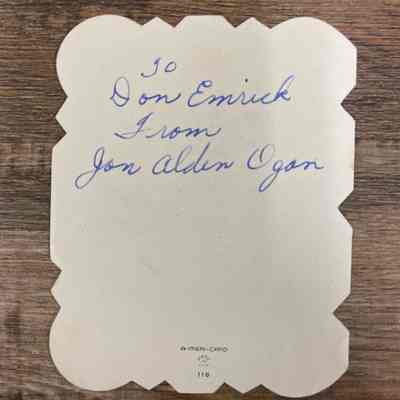 To
Don Emrick
From
Jon Alden Ogan
A-MERI-CARD
118